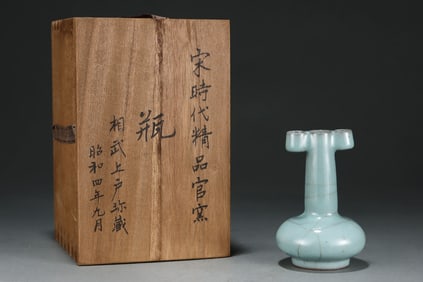 宋時代精品官窯
瓶
相武上戸珎藏
昭和四年九月